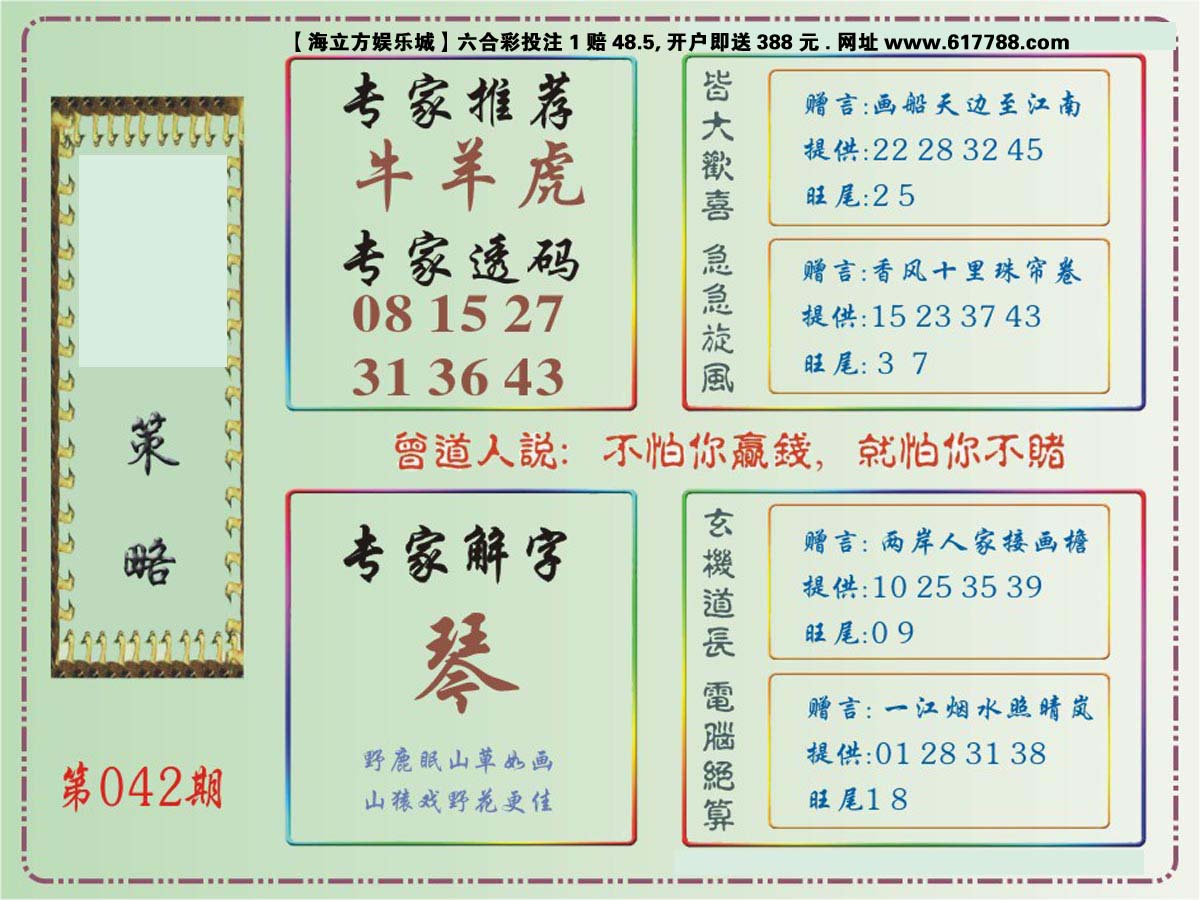 【海立方娱乐城】六合彩投注1赔48.5,开户即送388元.网址www.617788.com
策
略
第042期
专家推荐
牛羊虎
专家透码
08 15 27
31 36 43
皆大歡喜
赠言:画船天边至江南
提供:22 28 32 45
旺尾:2 5
急急旋風
赠言:香风十里珠帘卷
提供:15 23 37 43
旺尾:3 7
曾道人説: 不怕你贏錢, 就怕你不賭
专家解字
琴
野鹿眠山草如画
山猿戏野花更佳
玄機道長
赠言:两岸人家接画檐
提供:10 25 35 39
旺尾:0 9
電腦絕算
赠言:一江烟水照晴岚
提供:01 28 31 38
旺尾1 8